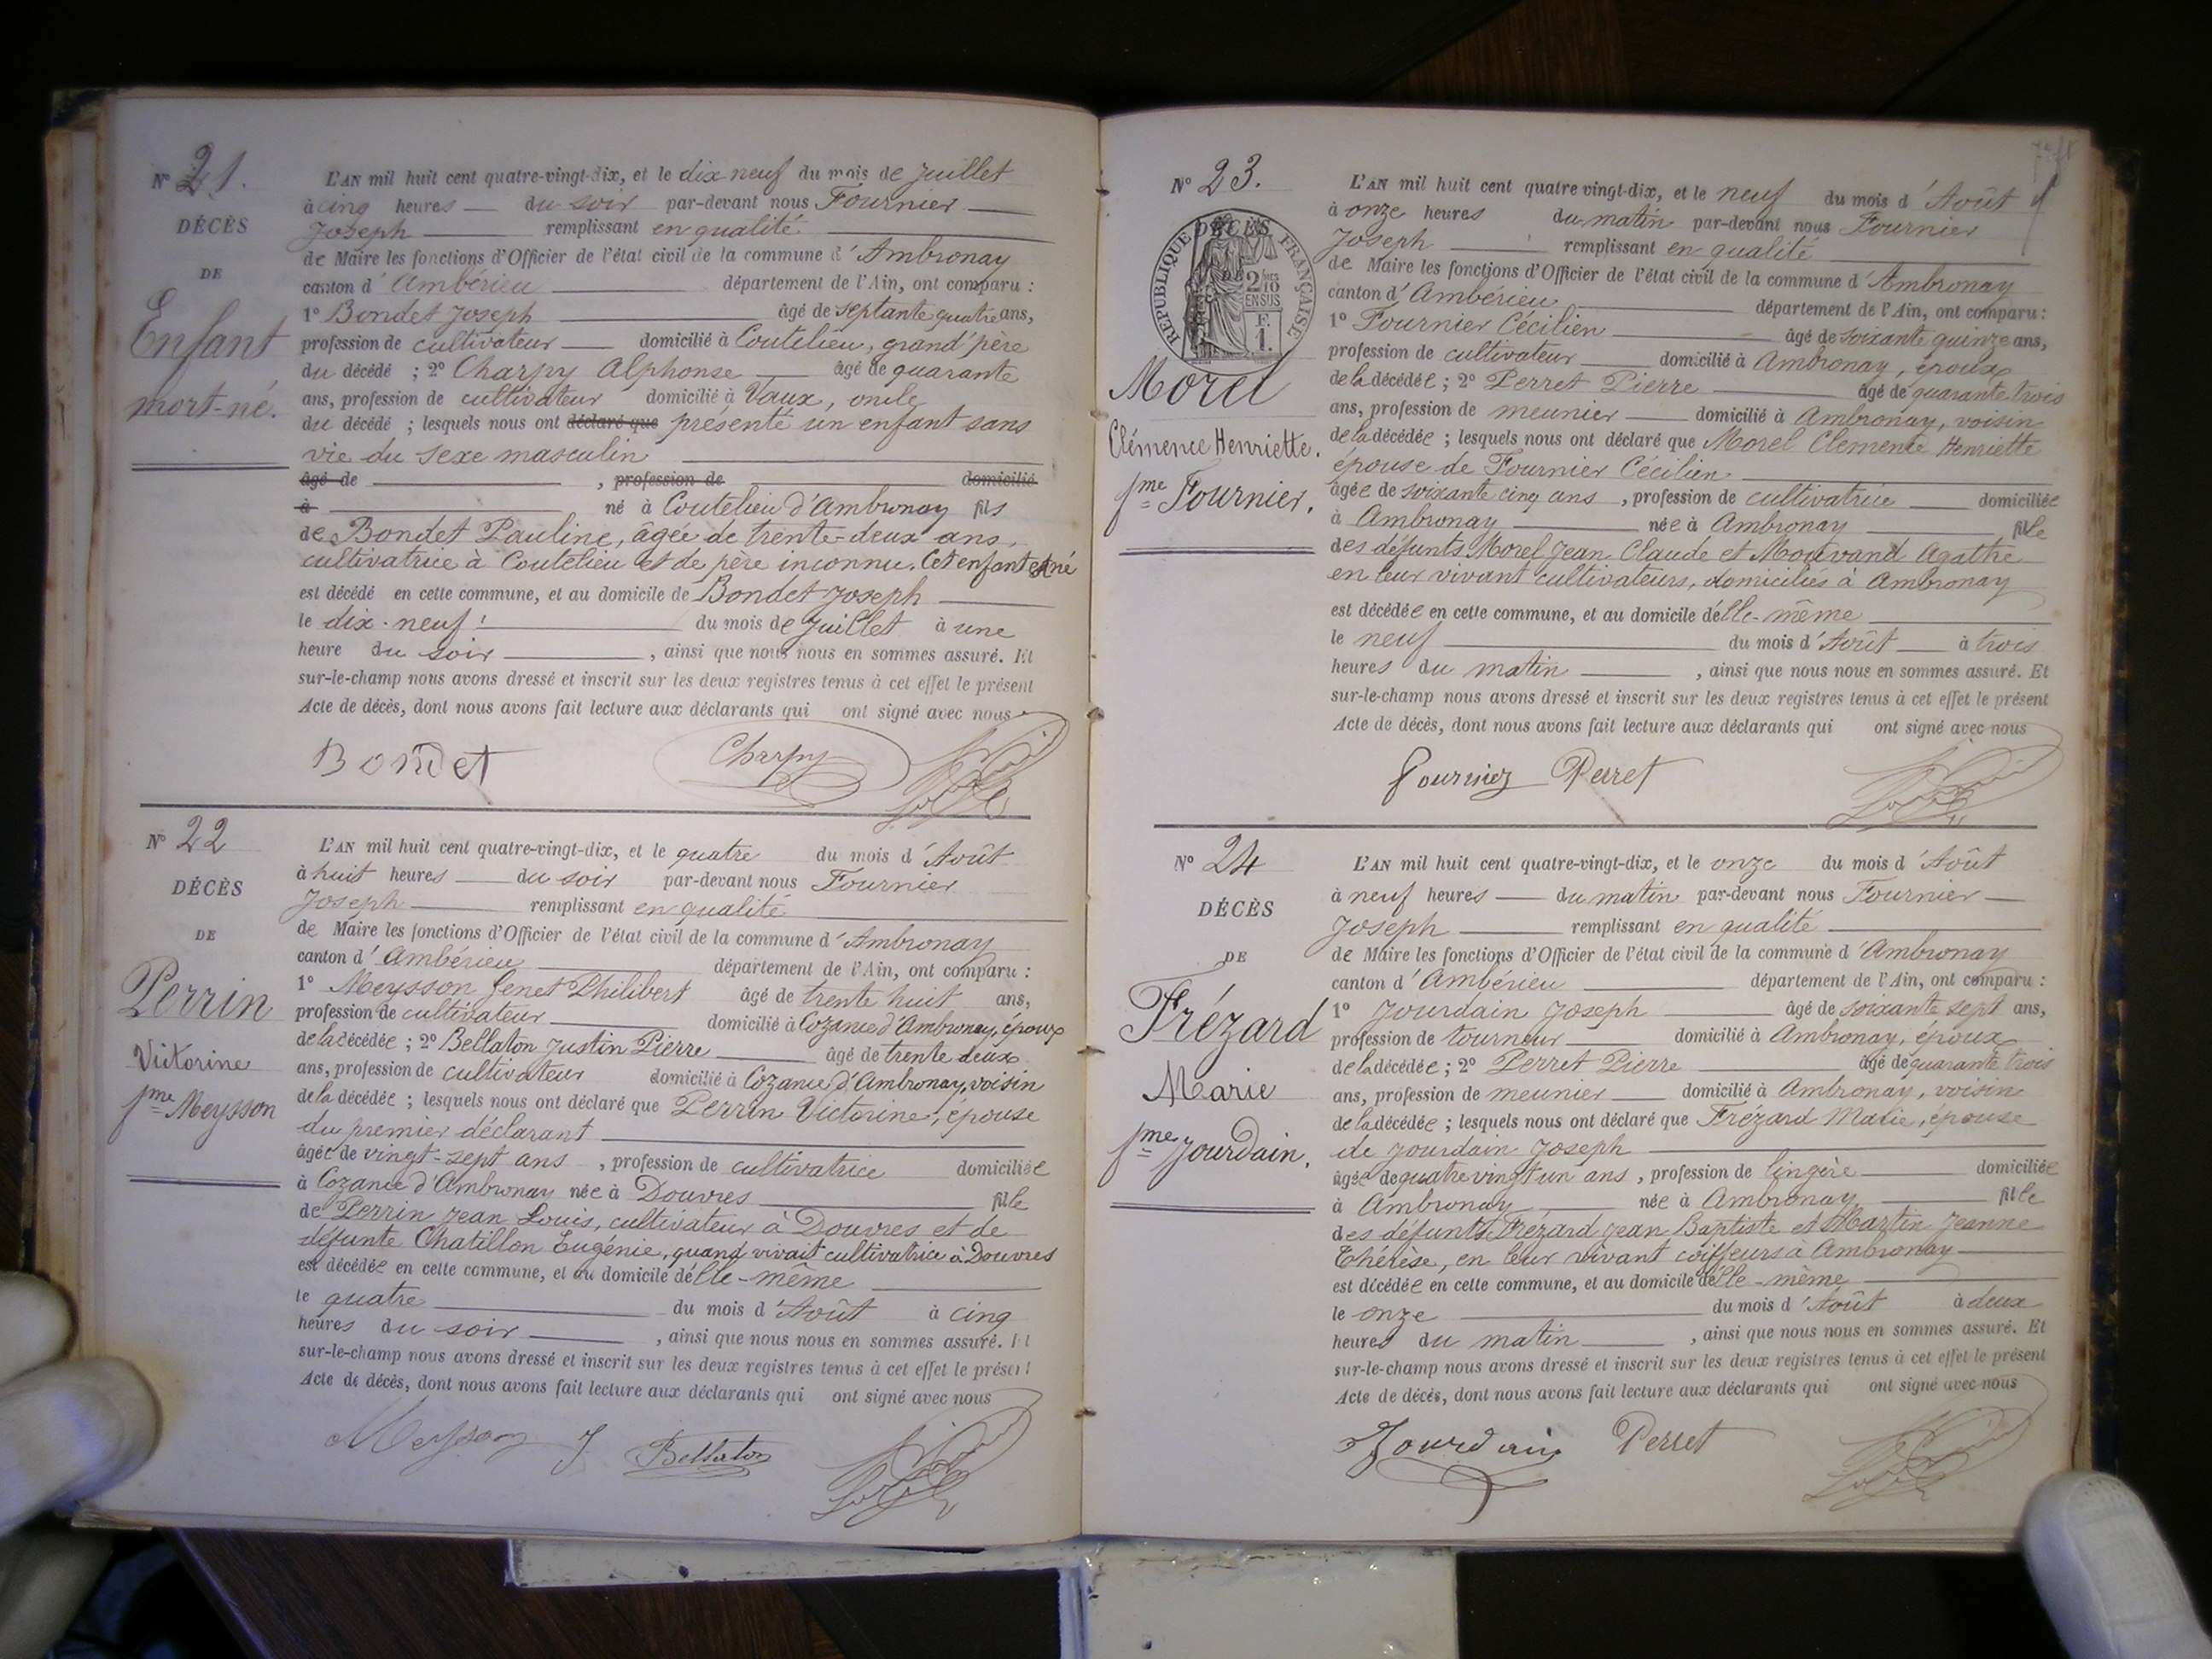 N° 21.
DÉCÈS
DE
Enfant
mort-né.
L'AN mil huit cent quatre-vingt-dix, et le dix neuf du mois de Juillet
à cinq heures du soir par-devant nous Fournier
Joseph remplissant en qualité
de Maire les fonctions d'Officier de l'état civil de la commune d'Ambronay
canton d'Ambérieu département de l'Ain, ont comparu :
1° Bondet Joseph âgé de septante quatre ans,
profession de cultivateur domicilié à Coutelieu, grand'père
du décédé ; 2° Charpy Alphonse âgé de quarante
ans, profession de cultivateur domicilié à Vaux, oncle
du décédé ; lesquels nous ont déclaré que présenté un enfant sans
vie du sexe masculin
âgé de , profession de domicilié
à né à Coutelieu d'Ambronay fils
de Bondet Pauline, âgée de trente-deux ans,
cultivatrice à Coutelieu et de père inconnu. Cet enfant est né
est décédé en cette commune, et au domicile de Bondet Joseph
le dix-neuf du mois de Juillet à une
heure du soir , ainsi que nous nous en sommes assuré. Et
sur-le-champ nous avons dressé et inscrit sur les deux registres tenus à cet effet le présent
Acte de décès, dont nous avons fait lecture aux déclarants qui ont signé avec nous
Bondet Charpy
N° 22
DÉCÈS
DE
Perrin
Victorine
fme Meysson
L'AN mil huit cent quatre-vingt-dix, et le quatre du mois d'Août
à huit heures du soir par-devant nous Fournier
Joseph remplissant en qualité
de Maire les fonctions d'Officier de l'état civil de la commune d'Ambronay
canton d'Ambérieu département de l'Ain, ont comparu :
1° Meysson Genet Philibert âgé de trente huit ans,
profession de cultivateur domicilié à Cozance d'Ambronay, époux
de la décédée ; 2° Bellaton Justin Pierre âgé de trente deux
ans, profession de cultivateur domicilié à Cozance d'Ambronay, voisin
de la décédée ; lesquels nous ont déclaré que Perrin Victorine, épouse
du premier déclarant
âgée de vingt-sept ans , profession de cultivatrice domiciliée
à Cozance d'Ambronay née à Douvres fille
de Perrin Jean Louis, cultivateur à Douvres et de
défunte Chatillon Eugénie, quand vivait cultivatrice à Douvres
est décédée en cette commune, et au domicile d'elle-même
le quatre du mois d'Août à cinq
heures du soir , ainsi que nous nous en sommes assuré. Et
sur-le-champ nous avons dressé et inscrit sur les deux registres tenus à cet effet le présent
Acte de décès, dont nous avons fait lecture aux déclarants qui ont signé avec nous
Meysson J Bellaton
N° 23.
RÉPUBLIQUE FRANÇAISE
DÉCÈS
2/10
EN SUS
F.
1.
Morel
Clémence Henriette.
fme Fournier.
L'AN mil huit cent quatre-vingt-dix, et le neuf du mois d'Août
à onze heures du matin par-devant nous Fournier
Joseph remplissant en qualité
de Maire les fonctions d'Officier de l'état civil de la commune d'Ambronay
canton d'Ambérieu département de l'Ain, ont comparu :
1° Fournier Cécilien âgé de soixante quinze ans,
profession de cultivateur domicilié à Ambronay, époux
de la décédée ; 2° Perret Pierre âgé de quarante trois
ans, profession de meunier domicilié à Ambronay, voisin
de la décédée ; lesquels nous ont déclaré que Morel Clémence Henriette
épouse de Fournier Cécilien
âgée de soixante cinq ans , profession de cultivatrice domiciliée
à Ambronay née à Ambronay fille
des défunts Morel Jean Claude et Montvand Agathe
en leur vivant cultivateurs, domiciliés à Ambronay
est décédée en cette commune, et au domicile d'elle-même
le neuf du mois d'Août à trois
heures du matin , ainsi que nous nous en sommes assuré. Et
sur-le-champ nous avons dressé et inscrit sur les deux registres tenus à cet effet le présent
Acte de décès, dont nous avons fait lecture aux déclarants qui ont signé avec nous
Fournier Perret
N° 24
DÉCÈS
DE
Frézard
Marie
fme Jourdain.
L'AN mil huit cent quatre-vingt-dix, et le onze du mois d'Août
à neuf heures du matin par-devant nous Fournier
Joseph remplissant en qualité
de Maire les fonctions d'Officier de l'état civil de la commune d'Ambronay
canton d'Ambérieu département de l'Ain, ont comparu :
1° Jourdain Joseph âgé de soixante sept ans,
profession de tourneur domicilié à Ambronay, époux
de la décédée ; 2° Perret Pierre âgé de quarante trois
ans, profession de meunier domicilié à Ambronay, voisin
de la décédée ; lesquels nous ont déclaré que Frézard Marie, épouse
de Jourdain Joseph
âgée de quatre vingt un ans , profession de lingère domiciliée
à Ambronay née à Ambronay fille
des défunts Frézard Jean Baptiste et Martin Jeanne
Thérèse, en leur vivant coiffeurs à Ambronay
est décédée en cette commune, et au domicile d'elle-même
le onze du mois d'Août à deux
heures du matin , ainsi que nous nous en sommes assuré. Et
sur-le-champ nous avons dressé et inscrit sur les deux registres tenus à cet effet le présent
Acte de décès, dont nous avons fait lecture aux déclarants qui ont signé avec nous
Jourdain Perret